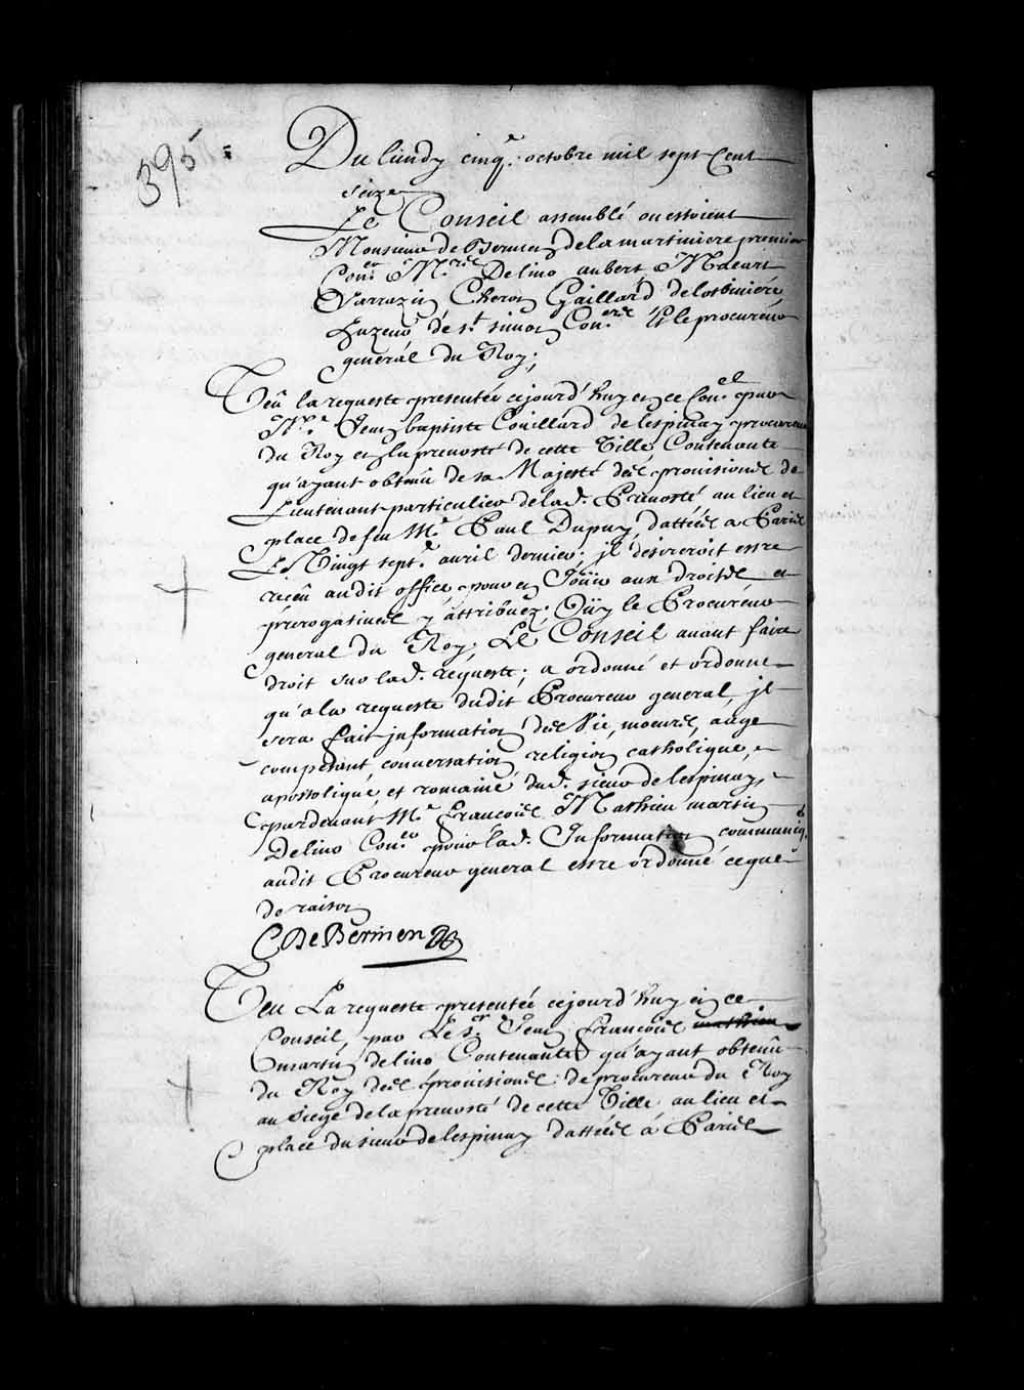 395
Du lundy cinqe. octobre mil sept Cent
seize
Le Conseil assemblé ou estoient
Monsieur de Bermen de la martiniere premier
Coner Mrs. Delino aubert Macart
Sarrazin Cheron Gaillard de lotbiniere
Luzeau de st. simon Coners Et le procureur
general du Roy;
Veû la requeste presentée cejourd'huy en ce Conel par
Me. Jean baptiste Couillard de lespinay procureur
du Roy en la prevosté de cette Ville Contenante
qu'ayant obtenû de sa Majesté des provisions de
Lieutenant particulier de lad. Prevosté au lieu et
place de feu Me. Paul Dupuy dattées a Paris
Le Vingt sept. avril dernier, jl desireroit estre
receû audit office pour en Joüir aux droits et
prerogatives y attribuez. Oüy le Procureur
general du Roy, Le Conseil avant faire
droit sur lad. requeste; a ordonné et ordonne
qu'a la requeste dudit Procureur general, jl
sera fait jnformation des Vie, moeurs, aage
competant, conversation religion catholique,
apostolique et romaine dud. sieur de lespinay,
pardevant Me. François Mathieu martin
Delino Coner pour lad. Information communiq.
audit Procureur general estre ordonné ce que
de raison
C De Bermen
Veu La requeste presentée cejourd'huy en ce
Conseil, par Le sr. Jean François mathieu
martin delino Contenante qu'ayant obtenû
du Roy des provisions de procureur du Roy
au siege de la prevosté de cette Ville au lieu et
place du sieur de lespinay dattées á Paris